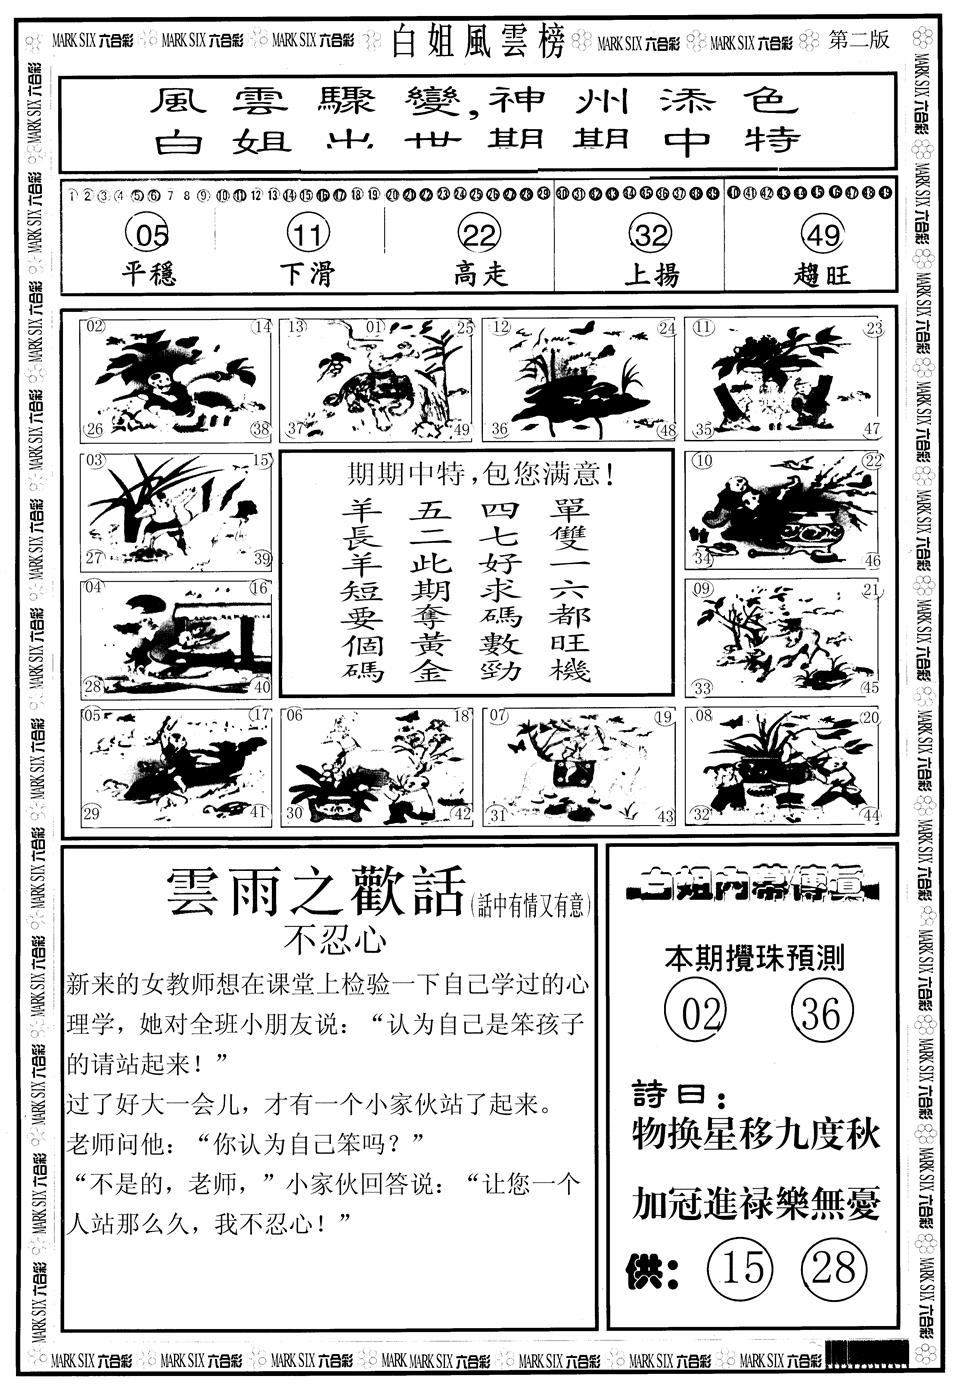 MARK SIX 六合彩 MARK SIX 六合彩 MARK SIX 六合彩 白姐風雲榜 MARK SIX 六合彩 MARK SIX 六合彩 第二版
風雲驟變,神州添色
白姐出世期期中特
1 2 3 4 5 6 7 8 9 10 11 12 13 14 15 16 17 18 19 20 21 22 23 24 25 26 27 28 29 30 31 32 33 34 35 36 37 38 39 40 41 42 43 44 45 46 47 48 49
05 11 22 32 49
平穩 下滑 高走 上揚 趨旺
02 14 13 01 25 12 24 11 23
26 38 37 49 36 48 35 47
03 15 10 22
27 39 34 46
04 16 09 21
28 40 33 45
05 17 06 18 07 19 08 20
29 41 30 42 31 43 32 44
期期中特,包您满意!
單雙一六都旺機
四七好求碼數勁
五二此期奪黃金
羊長羊短要個碼
雲雨之歡話(話中有情又有意)
不忍心
新来的女教师想在课堂上检验一下自己学过的心
理学，她对全班小朋友说：“认为自己是笨孩子
的请站起来！”
过了好大一会儿，才有一个小家伙站了起来。
老师问他：“你认为自己笨吗？”
“不是的，老师，”小家伙回答说：“让您一个
人站那么久，我不忍心！”
白姐内幕傳真
本期攪珠預測
02 36
詩曰：
物换星移九度秋
加冠進禄樂無憂
供： 15 28
MARK SIX 六合彩 MARK SIX 六合彩 MARK SIX 六合彩 MARK MARK SIX 六合彩 MARK SIX 六合彩 MARK SIX 六合彩 MARK SIX 六合彩